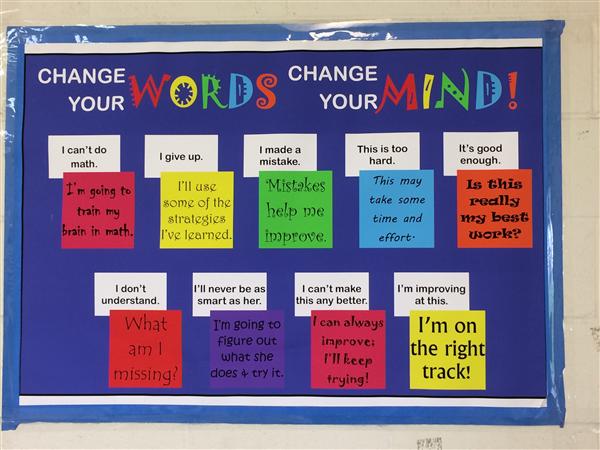 CHANGE YOUR WORDS CHANGE YOUR MIND!
I can't do
math.
I'm going to
train my
brain in math.
I give up.
I'll use
some of the
strategies
I've learned.
I made a
mistake.
Mistakes
help me
improve.
This is too
hard.
This may
take some
time and
effort.
It's good
enough.
Is this
really
my best
work?
I don't
understand.
What
am I
missing?
I'll never be as
smart as her.
I'm going to
figure out
what she
does & try it.
I can't make
this any better.
I can always
improve;
I'll keep
trying!
I'm improving
at this.
I'm on
the right
track!